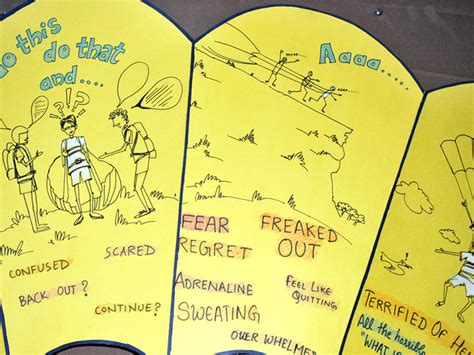 do this
do that
and....
!?!?
CONFUSED
SCARED
BACK OUT?
CONTINUE?
Aaaa.....
FEAR
FREAKED
OUT
REGRET
ADRENALINE
FEEL LIKE
QUITTING
SWEATING
OVER WHELME
TERRIFIED OF HE
All the horrible
"WHAT